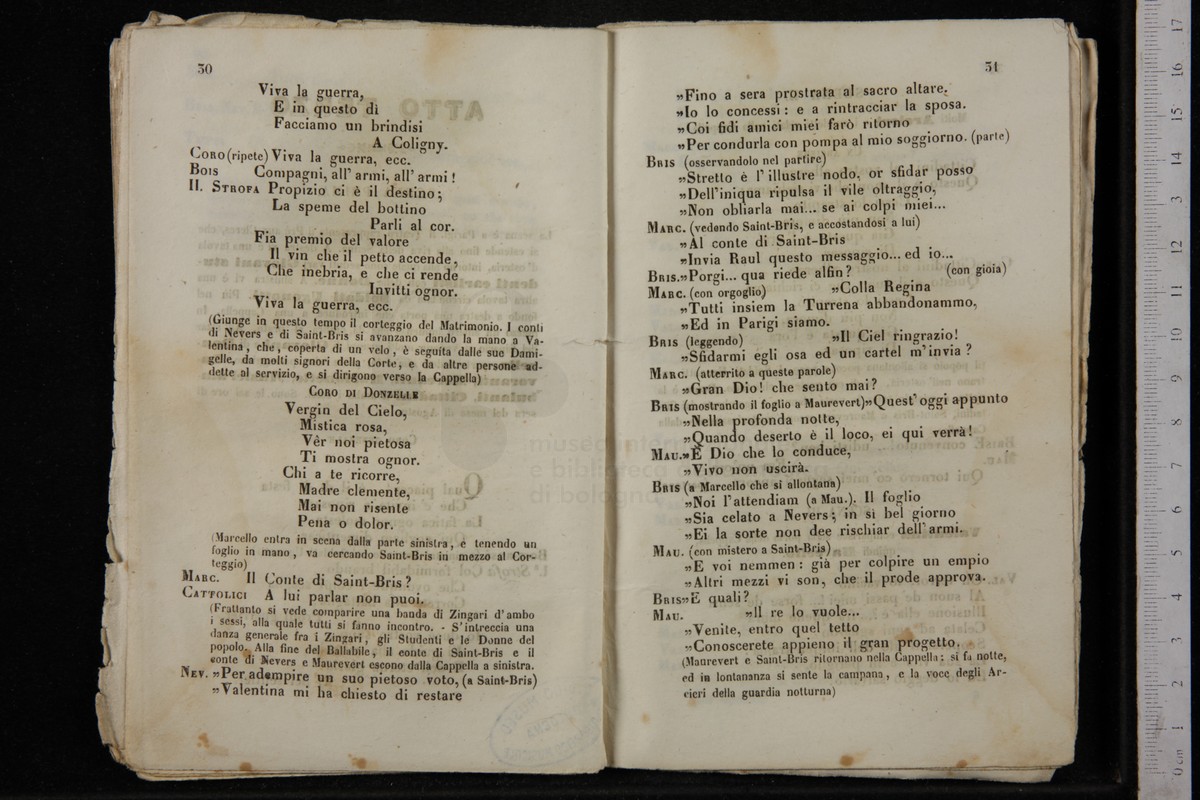 30
Viva la guerra,
E in questo dì
Facciamo un brindisi
A Coligny.
CORO (ripete) Viva la guerra, ecc.
BOIS Compagni, all' armi, all' armi!
II. STROFA Propizio ci è il destino;
La speme del bottino
Parli al cor.
Fia premio del valore
Il vin che il petto accende,
Che inebria, e che ci rende
Invitti ognor.
Viva la guerra, ecc.
(Giunge in questo tempo il corteggio del Matrimonio. I conti
di Nevers e di Saint-Bris si avanzano dando la mano a Va-
lentina, che, coperta di un velo, è seguita dalle sue Dami-
gelle, da molti signori della Corte, e da altre persone ad-
dette al servizio, e si dirigono verso la Cappella)
CORO DI DONZELLE
Vergin del Cielo,
Mistica rosa,
Vêr noi pietosa
Ti mostra ognor.
Chi a te ricorre,
Madre clemente,
Mai non risente
Pena o dolor.
(Marcello entra in scena dalla parte sinistra, e tenendo un
foglio in mano, va cercando Saint-Bris in mezzo al Cor-
teggio)
MARC. Il Conte di Saint-Bris?
CATTOLICI A lui parlar non puoi.
(Frattanto si vede comparire una banda di Zingari d'ambo
i sessi, alla quale tutti si fanno incontro. - S'intreccia una
danza generale fra i Zingari, gli Studenti e le Donne del
popolo. Alla fine del Ballabile, il conte di Saint-Bris e il
conte di Nevers e Maurevert escono dalla Cappella a sinistra.
NEV. „Per adempire un suo pietoso voto, (a Saint-Bris)
„Valentina mi ha chiesto di restare
31
„Fino a sera prostrata al sacro altare.
„Io lo concessi: e a rintracciar la sposa.
„Coi fidi amici miei farò ritorno
„Per condurla con pompa al mio soggiorno. (parte)
BRIS (osservandolo nel partire)
„Stretto è l'illustre nodo, or sfidar posso
„Dell'iniqua ripulsa il vile oltraggio,
„Non obliarla mai... se ai colpi miei...
MARC. (vedendo Saint-Bris, e accostandosi a lui)
„Al conte di Saint-Bris
„Invia Raul questo messaggio... ed io...
BRIS. „Porgi... qua riede alfin? (con gioia)
MARC. (con orgoglio) „Colla Regina
„Tutti insiem la Turrena abbandonammo,
„Ed in Parigi siamo.
BRIS (leggendo) „Il Ciel ringrazio!
„Sfidarmi egli osa ed un cartel m'invia?
MARC. (atterrito a queste parole)
„Gran Dio! che sento mai?
BRIS (mostrando il foglio a Maurevert) „Quest' oggi appunto
„Nella profonda notte,
„Quando deserto è il loco, ei qui verrà!
MAU. „E Dio che lo conduce,
„Vivo non uscirà.
BRIS (a Marcello che si allontana)
„Noi l'attendiam (a Mau.). Il foglio
„Sia celato a Nevers; in sì bel giorno
„Ei la sorte non dee rischiar dell' armi.
MAU. (con mistero a Saint-Bris)
„E voi nemmen: già per colpire un empio
„Altri mezzi vi son, che il prode approva.
BRIS „E quali?
MAU. „Il re lo vuole...
„Venite, entro quel tetto
„Conoscerete appieno il gran progetto.
(Maurevert e Saint-Bris ritornano nella Cappella: si fa notte,
ed in lontananza si sente la campana, e la voce degli Ar-
cieri della guardia notturna)